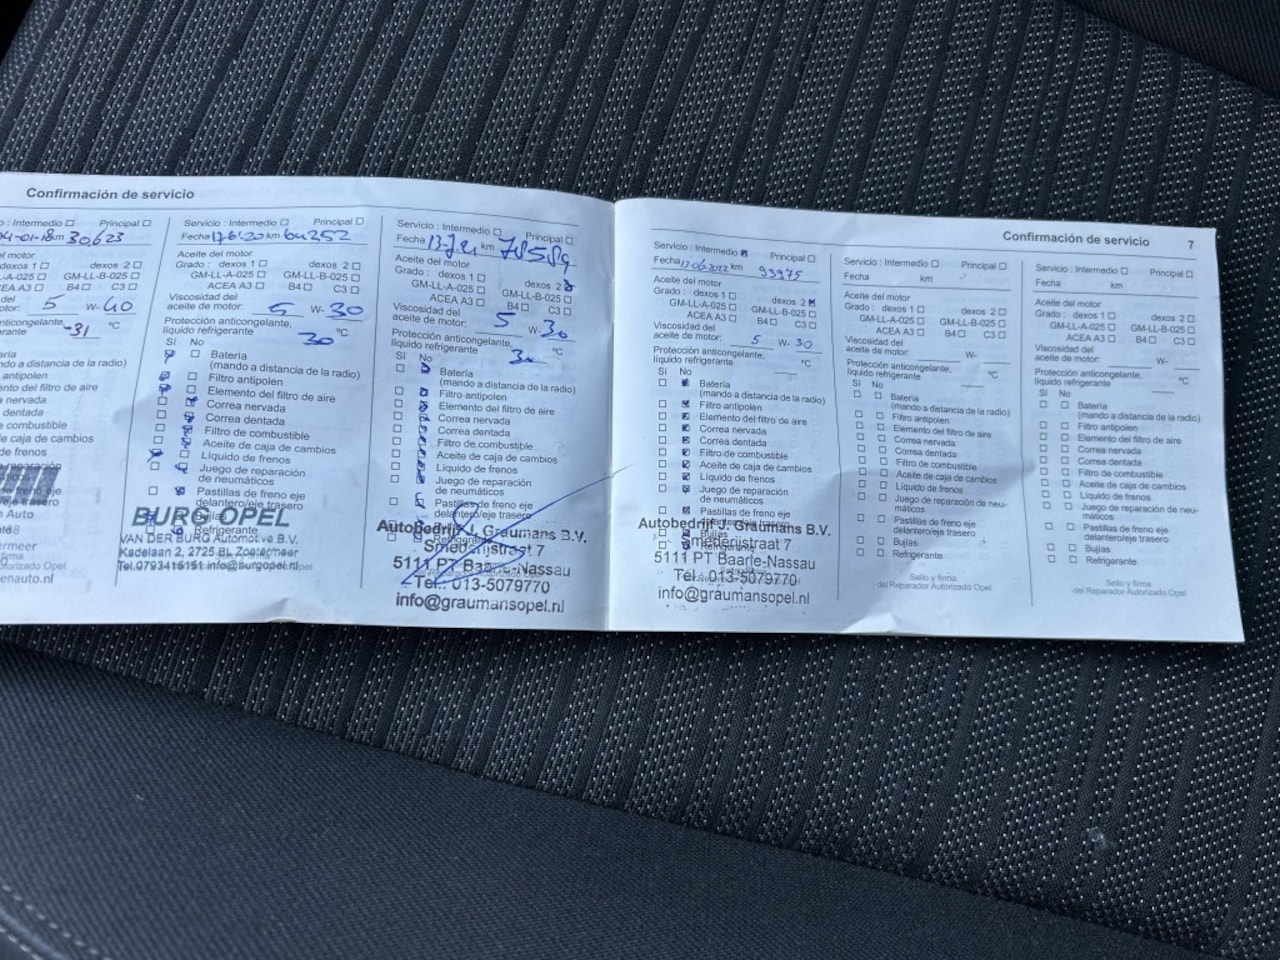 Confirmación de servicio
o : Intermedio Principal
04-01-18 km 30623
el motor
dexos 1 dexos 2
-A-025 GM-LL-B-025
CEA A3 B4 C3
del 5 W- 40
nticongelante,
rigerante -31 °C
ería
ndo a distancia de la radio)
antipolen
ento del filtro de aire
a nervada
dentada
e combustible
e caja de cambios
de frenos
enauto.nl
Servicio : Intermedio Principal
Fecha 17-6-20 km 64252
Aceite del motor
Grado : dexos 1 dexos 2
GM-LL-A-025 GM-LL-B-025
ACEA A3 B4 C3
Viscosidad del
aceite de motor: 5 W- 30
Protección anticongelante,
líquido refrigerante 30 °C
Sí No
Batería
(mando a distancia de la radio)
Filtro antipolen
Elemento del filtro de aire
Correa nervada
Correa dentada
Filtro de combustible
Aceite de caja de cambios
Líquido de frenos
Juego de reparación
de neumáticos
Pastillas de freno eje
delantero/eje trasero
Bujías
Refrigerante
BURG OPEL
VAN DER BURG Automotive B.V.
Kadelaan 2, 2725 BL Zoetermeer
Tel.0793416151 info@burgopel.nl
Servicio : Intermedio Principal
Fecha 13-7-21 km 78589
Aceite del motor
Grado : dexos 1 dexos 2
GM-LL-A-025 GM-LL-B-025
ACEA A3 B4 C3
Viscosidad del
aceite de motor: 5 W- 30
Protección anticongelante,
líquido refrigerante 30 °C
Sí No
Batería
(mando a distancia de la radio)
Filtro antipolen
Elemento del filtro de aire
Correa nervada
Correa dentada
Filtro de combustible
Aceite de caja de cambios
Líquido de frenos
Juego de reparación
de neumáticos
Pastillas de freno eje
delantero/eje trasero
Autobedrijf J. Graumans B.V.
Smederijstraat 7
5111 PT Baarle-Nassau
Tel.: 013-5079770
info@graumansopel.nl
Confirmación de servicio 7
Servicio : Intermedio Principal
Fecha km 93975
Aceite del motor
Grado : dexos 1 dexos 2
GM-LL-A-025 GM-LL-B-025
ACEA A3 B4 C3
Viscosidad del
aceite de motor: 5 W- 30
Protección anticongelante,
líquido refrigerante °C
Sí No
Batería
(mando a distancia de la radio)
Filtro antipolen
Elemento del filtro de aire
Correa nervada
Correa dentada
Filtro de combustible
Aceite de caja de cambios
Líquido de frenos
Juego de reparación
de neumáticos
Pastillas de freno eje
Bujías
Autobedrijf J. Graumans B.V.
Smederijstraat 7
5111 PT Baarle-Nassau
Tel.: 013-5079770
info@graumansopel.nl
Servicio : Intermedio Principal
Fecha km
Aceite del motor
Grado : dexos 1 dexos 2
GM-LL-A-025 GM-LL-B-025
ACEA A3 B4 C3
Viscosidad del
aceite de motor: W-
Protección anticongelante,
líquido refrigerante °C
Sí No
Batería
(mando a distancia de la radio)
Filtro antipolen
Elemento del filtro de aire
Correa nervada
Correa dentada
Filtro de combustible
Aceite de caja de cambios
Líquido de frenos
Juego de reparación de neu-
máticos
Pastillas de freno eje
delantero/eje trasero
Bujías
Refrigerante
Sello y firma
del Reparador Autorizado Opel
Servicio : Intermedio Principal
Fecha km
Aceite del motor
Grado : dexos 1 dexos 2
GM-LL-A-025 GM-LL-B-025
ACEA A3 B4 C3
Viscosidad del
aceite de motor: W-
Protección anticongelante,
líquido refrigerante °C
Sí No
Batería
(mando a distancia de la radio)
Filtro antipolen
Elemento del filtro de aire
Correa nervada
Correa dentada
Filtro de combustible
Aceite de caja de cambios
Líquido de frenos
Juego de reparación de neu-
máticos
Pastillas de freno eje
delantero/eje trasero
Bujías
Refrigerante
Sello y firma
del Reparador Autorizado Opel